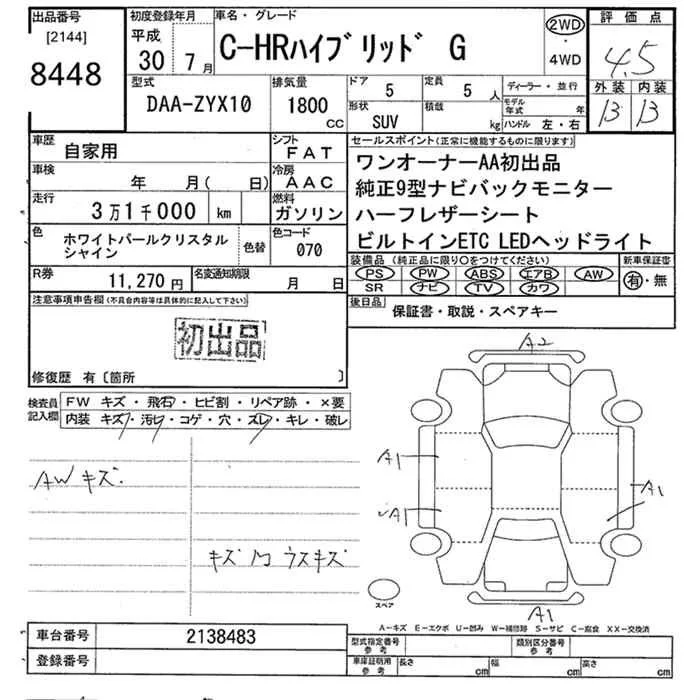 出品番号
[2144]
8448
初度登録年月
平成
30 7月
車名・グレード
C-HRハイブリッド G
2WD
・
4WD
評価点
4.5
外装 内装
B B
型式
DAA-ZYX10
排気量
1800
CC
ドア
5
定員
5 人
形状
SUV
積載
kg
ディーラー・並行
モデル年式 年
ハンドル 左・右
車歴
自家用
シフト
FAT
車検
年 月( 日)
冷房
AAC
走行
3万1千000 km
燃料
ガソリン
色
ホワイトパールクリスタル
シャイン
色替
色コード
070
R券
11,270円
名変通知期限
月 日
セールスポイント(正常に機能するものに限ります)
ワンオーナーAA初出品
純正9型ナビバックモニター
ハーフレザーシート
ビルトインETC LEDヘッドライト
装備品(純正品に限り○をつけてください)
新車保証書
PS PW ABS エアB AW
SR ナビ TV カワ
有・無
後日品
保証書・取説・スペアキー
注意事項申告欄(不具合内容等は具体的に記入して下さい)
初出品
修復歴 有〔箇所 〕
検査員
記入欄
FW キズ・飛石・ヒビ割・リペア跡・×要
内装 キズ・汚レ・コゲ・穴・ズレ・キレ・破レ
AWキズ.
キズ ウスキズ
A2
A1
A1
A1
A1
スペア
A-キズ E-エクボ U-凹み W-補修跡 S-サビ C-腐食 XX-交換済
車台番号
2138483
登録番号
型式指定番号
参考
類別区分番号
参考
車庫証明用
参考
長さ cm
幅 cm
高さ cm